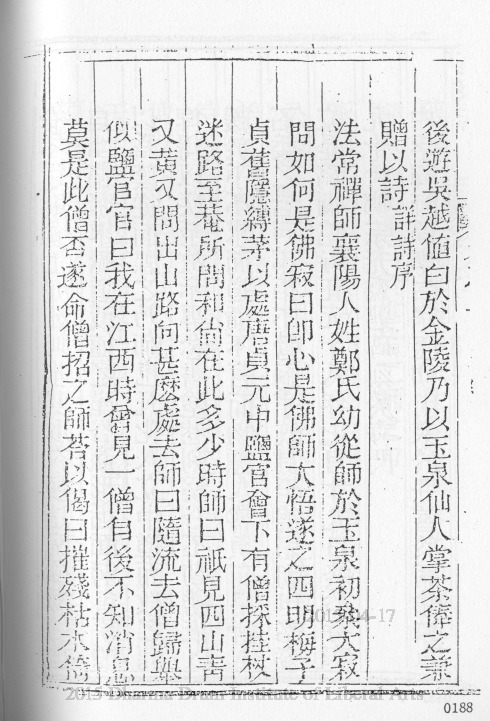 後遊吳越値白於金陵乃以玉泉仙人掌茶俾之兼
贈以詩詳詩序
法常禪師襄陽人姓鄭氏幼從師於玉泉初參大寂
問如何是佛寂曰卽心是佛師大悟遂之四明梅子
貞舊隱縛茅以處唐貞元中鹽官會下有僧採拄杖
迷路至菴所問和尙在此多少時師曰祇見四山靑
又黃又問出山路向甚麽處去師曰隨流去僧歸舉
似鹽官官曰我在江西時曾見一僧自後不知消息
莫是此僧否遂命僧招之師荅以偈曰摧殘枯木倚
2015-04-17
2015 Dharma Drum Institute of Liberal Arts
0188